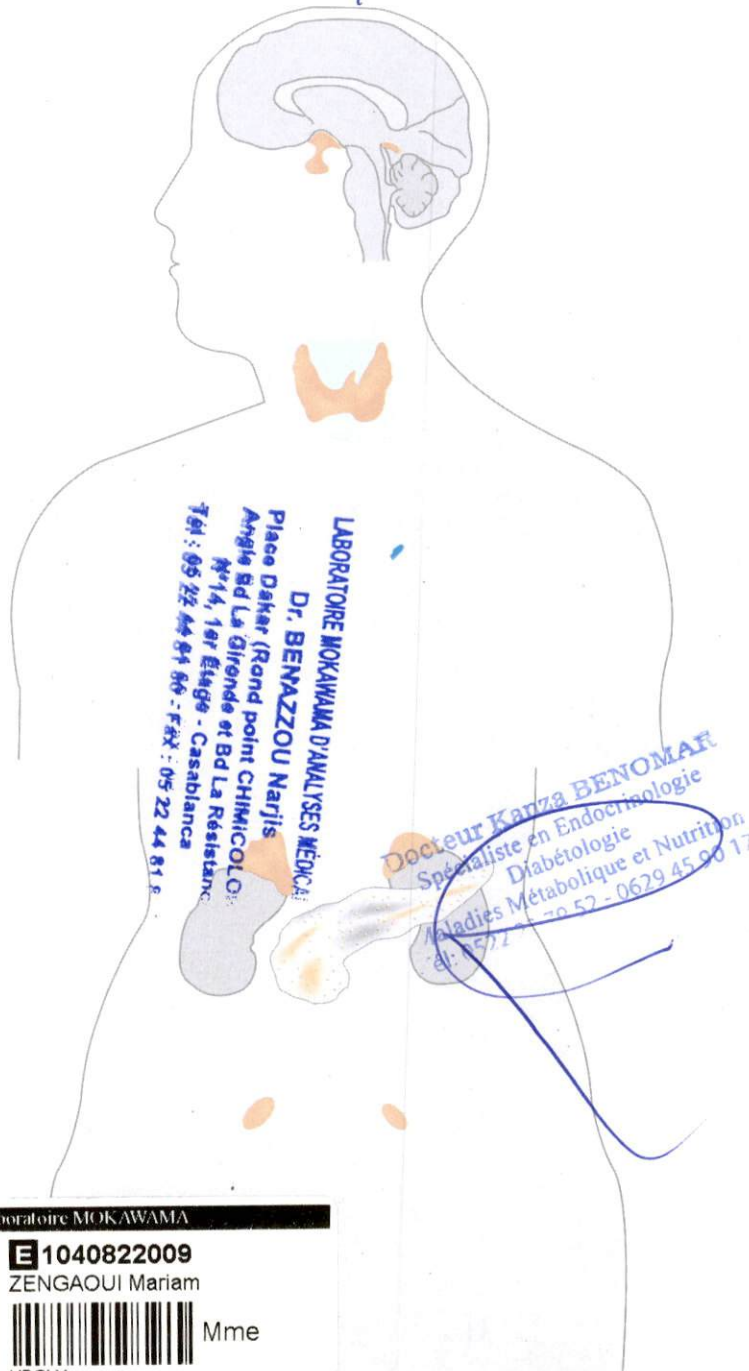 LABORATOIRE MOKAWAMA D'ANALYSES MÉDICA
Dr. BENAZZOU Narjis
Place Dakar (Rond point CHIMICOLO
Angle Bd La Gironde et Bd La Résistanc
N°14, 1er Etage - Casablanca
Tél : 05 22 44 81 - Fax : 05 22 44 81
Docteur Kanza BENOMAR
Spécialiste en Endocrinologie
Diabétologie
Maladies Métabolique et Nutrition
0522 70 52 - 0629 45 90 17
boratoire MOKAWAMA
E 1040822009
ZENGAOUI Mariam
Mme